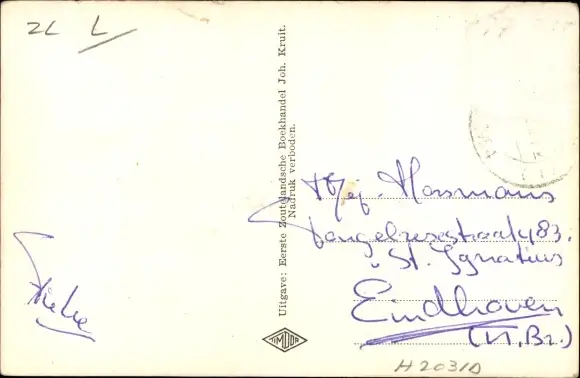 ZL L
Uitgave: Eerste Zoutelandsche Boekhandel Joh. Kruit.
Nadruk verboden.
Mej. Mosmans
Tongelresestraat 483.
"St. Ignatius
Eindhoven
(N.Br.)
TIMDOR
H 2031D